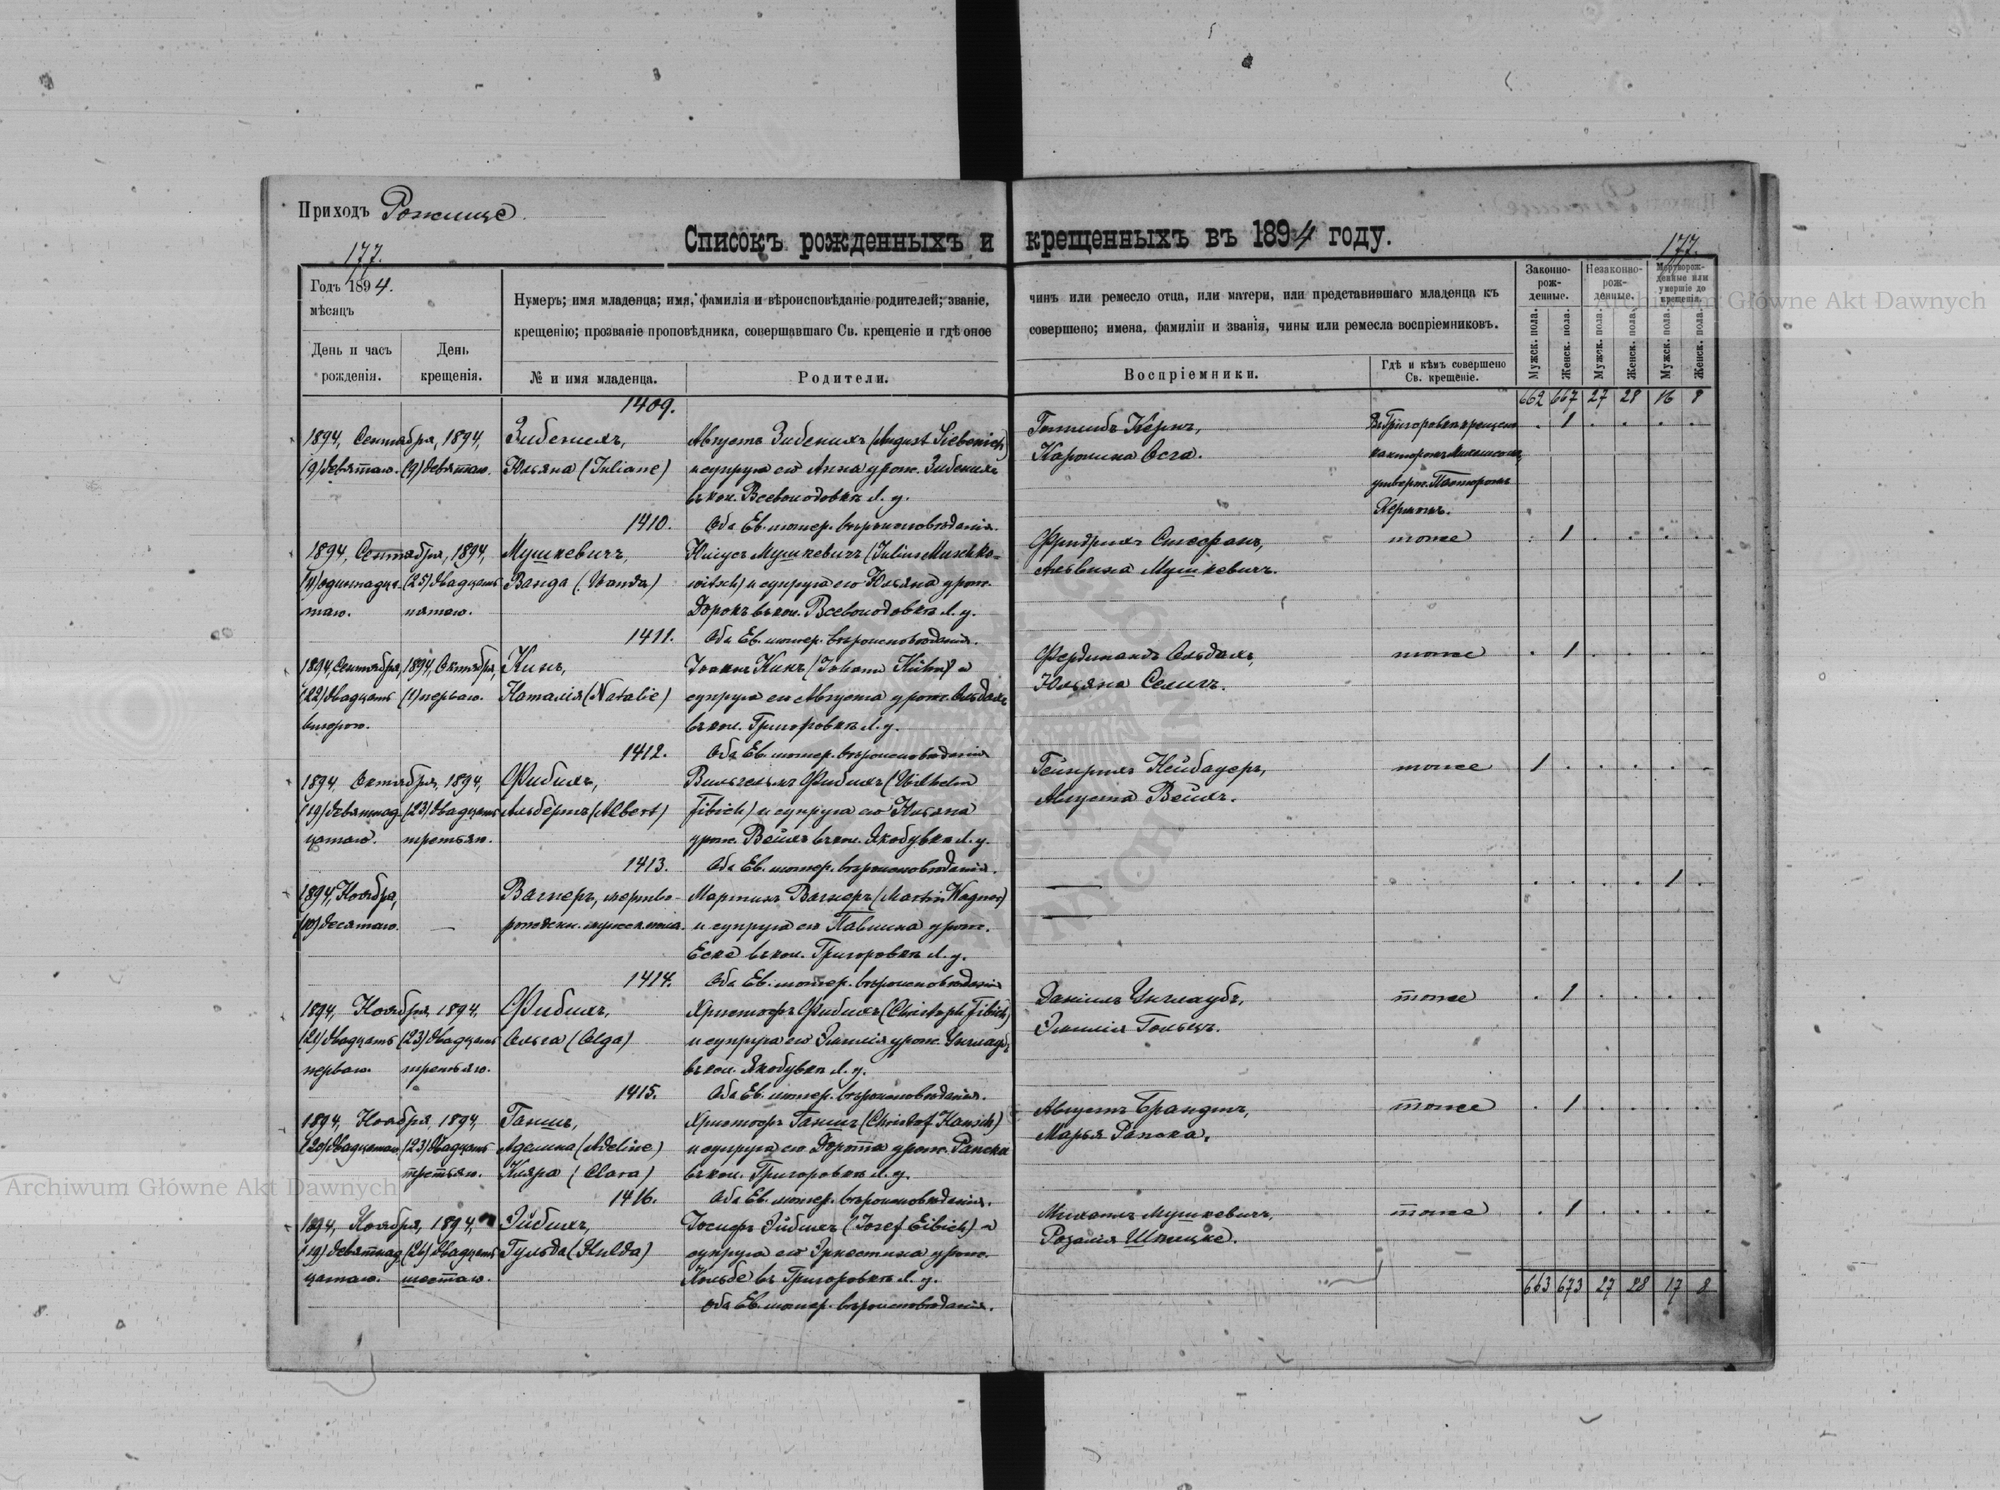 Приходъ Рожище.
177.
Списокъ рожденныхъ и крещенныхъ въ 1894 году.
177.
Годъ 1894.
мѣсяцъ
День и часъ рожденія.
День крещенія.
Нумеръ; имя младенца; имя, фамилія и вѣроисповѣданіе родителей; званіе,
крещенію; прозваніе проповѣдника, совершавшаго Св. крещеніе и гдѣ оное
№ и имя младенца.
Родители.
чинъ или ремесло отца, или матери, или представившаго младенца къ
совершено; имена, фамиліи и званія, чины или ремесла воспріемниковъ.
Воспріемники.
Гдѣ и кѣмъ совершено
Св. крещеніе.
Законно-
рож-
денные.
Незаконно-
рож-
денные.
Мертворож-
денные или
умершіе до
крещенія.
Мужск. пола.
Женск. пола.
Мужск. пола.
Женск. пола.
Мужск. пола.
Женск. пола.
662 667 27 28 16 8
1409.
1894, Сентября, 1894,
(9) девятаго. (9) девятаго.
Зибенихъ,
Юльяна (Juliane)
Августъ Зибенихъ (August Siebenich)
и супруга его Анна урож. Зибенихъ
въ кол. Всеволодовкѣ Л. у.
Оба Ев. лютер. вѣроисповѣданія.
Готлибъ Кернъ,
Каролина
Въ Григоровкѣ крещена
утверж. Пасторомъ
Керномъ.
. 1 . . . .
1410.
1894, Сентября, 1894,
(11) одиннадца- (25) двадцать
таго. пятаго.
Мушкевичъ,
Ванда (Wanda)
Юлiусъ Мушкевичъ (Julius Muschke-
witsch) и супруга его Юльяна урож.
въ кол. Всеволодовкѣ Л. у.
Оба Ев. лютер. вѣроисповѣданія.
Фридрихъ
Альвина Мушкевичъ.
тоже
. 1 . . . .
1411.
1894, Сентября, 1894, Октября,
(22) двадцать (1) перваго.
второго.
Кинъ,
Наталія (Natalie)
Іоганъ Кинъ (Johann Kühn) и
супруга его Августа урож.
въ кол. Григоровкѣ Л. у.
Оба Ев. лютер. вѣроисповѣданія.
Фердинандъ
Юльяна Селигъ.
тоже
. 1 . . . .
1412.
1894, Октября, 1894,
(19) девятнад- (23) двадцать
цатаго. третьяго.
Фибихъ,
Альбертъ (Albert)
Вильгельмъ Фибихъ (Wilhelm
Fibich) и супруга его Юльяна
урож. Вейхъ въ кол. Якобувкѣ Л. у.
Оба Ев. лютер. вѣроисповѣданія.
Гейнрихъ Нейбауеръ,
Августа Вейхъ.
тоже
1 . . . . .
1413.
1894, Ноября,
(10) десятаго. —
Вагнеръ, мертво-
рожденн. мужск. пола.
Мартинъ Вагнеръ (Martin Wagner)
и супруга его Павлина урож.
Еске въ кол. Григоровкѣ Л. у.
Оба Ев. лютер. вѣроисповѣданія.
—
—
. . . . 1 .
1414.
1894, Ноября, 1894,
(21) двадцать (23) двадцать
перваго. третьяго.
Фибихъ,
Ольга (Olga)
Христофъ Фибихъ (Christoph Fibich)
и супруга его Эмилія урож.
въ кол. Якобувкѣ Л. у.
Оба Ев. лютер. вѣроисповѣданія.
Даніилъ
Эмилія Гольцъ.
тоже
. 1 . . . .
1415.
1894, Ноября, 1894,
(20) двадцатаго (23) двадцать
третьяго.
Ганшъ,
Аделина (Adeline)
Клара (Clara)
Христофъ Ганшъ (Christof Hansch)
и супруга его Доротта урож. Рапска
въ кол. Григоровкѣ Л. у.
Оба Ев. лютер. вѣроисповѣданія.
Августъ Брандтъ,
Марья Рапска.
тоже
. 1 . . . .
1416.
1894, Ноября, 1894,
(19) девятнад- (26) двадцать
цатаго. шестаго.
Эйбихъ,
Гульда (Hulda)
Іосифъ Эйбихъ (Josef Eibich) и
супруга его Эрнестина урож.
Кольбе въ Григоровкѣ Л. у.
Оба Ев. лютер. вѣроисповѣданія.
Михаилъ Мушкевичъ,
Розалія
тоже
. 1 . . . .
663 673 27 28 17 8
Archiwum Główne Akt Dawnych
Archiwum Główne Akt Dawnych